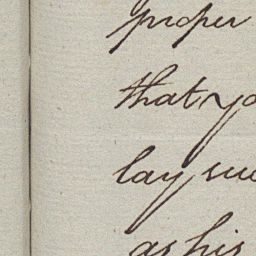 proper
that yo
lay suc
as his